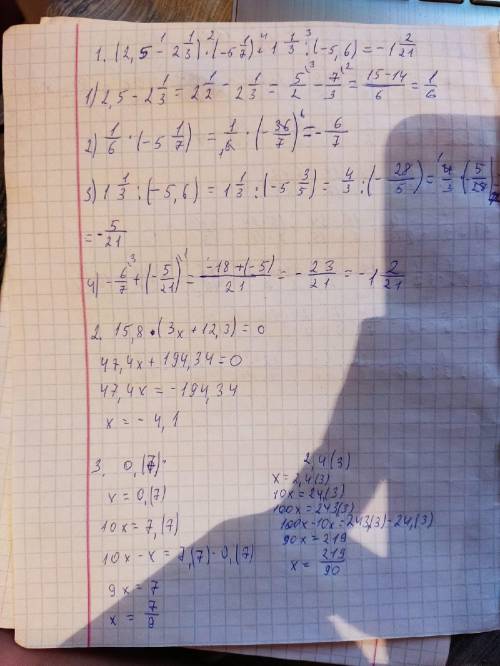 1. (2,5 - 2 1/3) · (-5 1/7) + 1 1/3 : (-5,6) = -1 2/21
1) 2,5 - 2 1/3 = 2 1/2 - 2 1/3 = 5/2 - 7/3 = 15-14/6 = 1/6
2) 1/6 · (-5 1/7) = 1/6 · (-36/7) = -6/7
3) 1 1/3 : (-5,6) = 1 1/3 : (-5 3/5) = 4/3 : (-28/5) = 4/3 · (5/28)
= -5/21
4) -6/7 + (-5/21) = -18+(-5)/21 = -23/21 = -1 2/21
2. 15,8 · (3x + 12,3) = 0
47,4x + 194,34 = 0
47,4x = -194,34
x = -4,1
3. 0,(7)
x = 0,(7)
10x = 7,(7)
10x - x = 7,(7) - 0,(7)
9x = 7
x = 7/9
2,4(3)
x = 2,4(3)
10x = 24,(3)
100x = 243,(3)
100x - 10x = 243,(3) - 24,(3)
90x = 219
x = 219/90